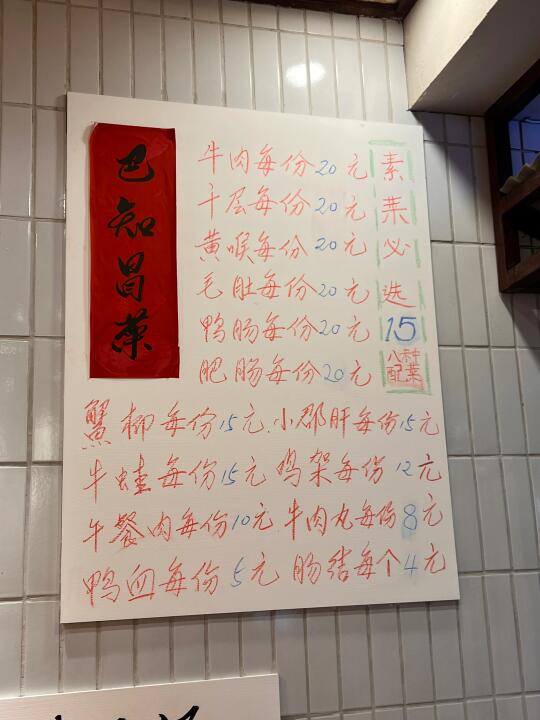 巴知冒菜
牛肉每份20元
千层每份20元
黄喉每份20元
毛肚每份20元
鸭肠每份20元
肥肠每份20元
素菜必选15
八种配菜
蟹柳每份15元.小郡肝每份15元
牛蛙每份15元 鸡架每份12元
午餐肉每份10元 牛肉丸每份8元
鸭血每份5元 肠结每个4元